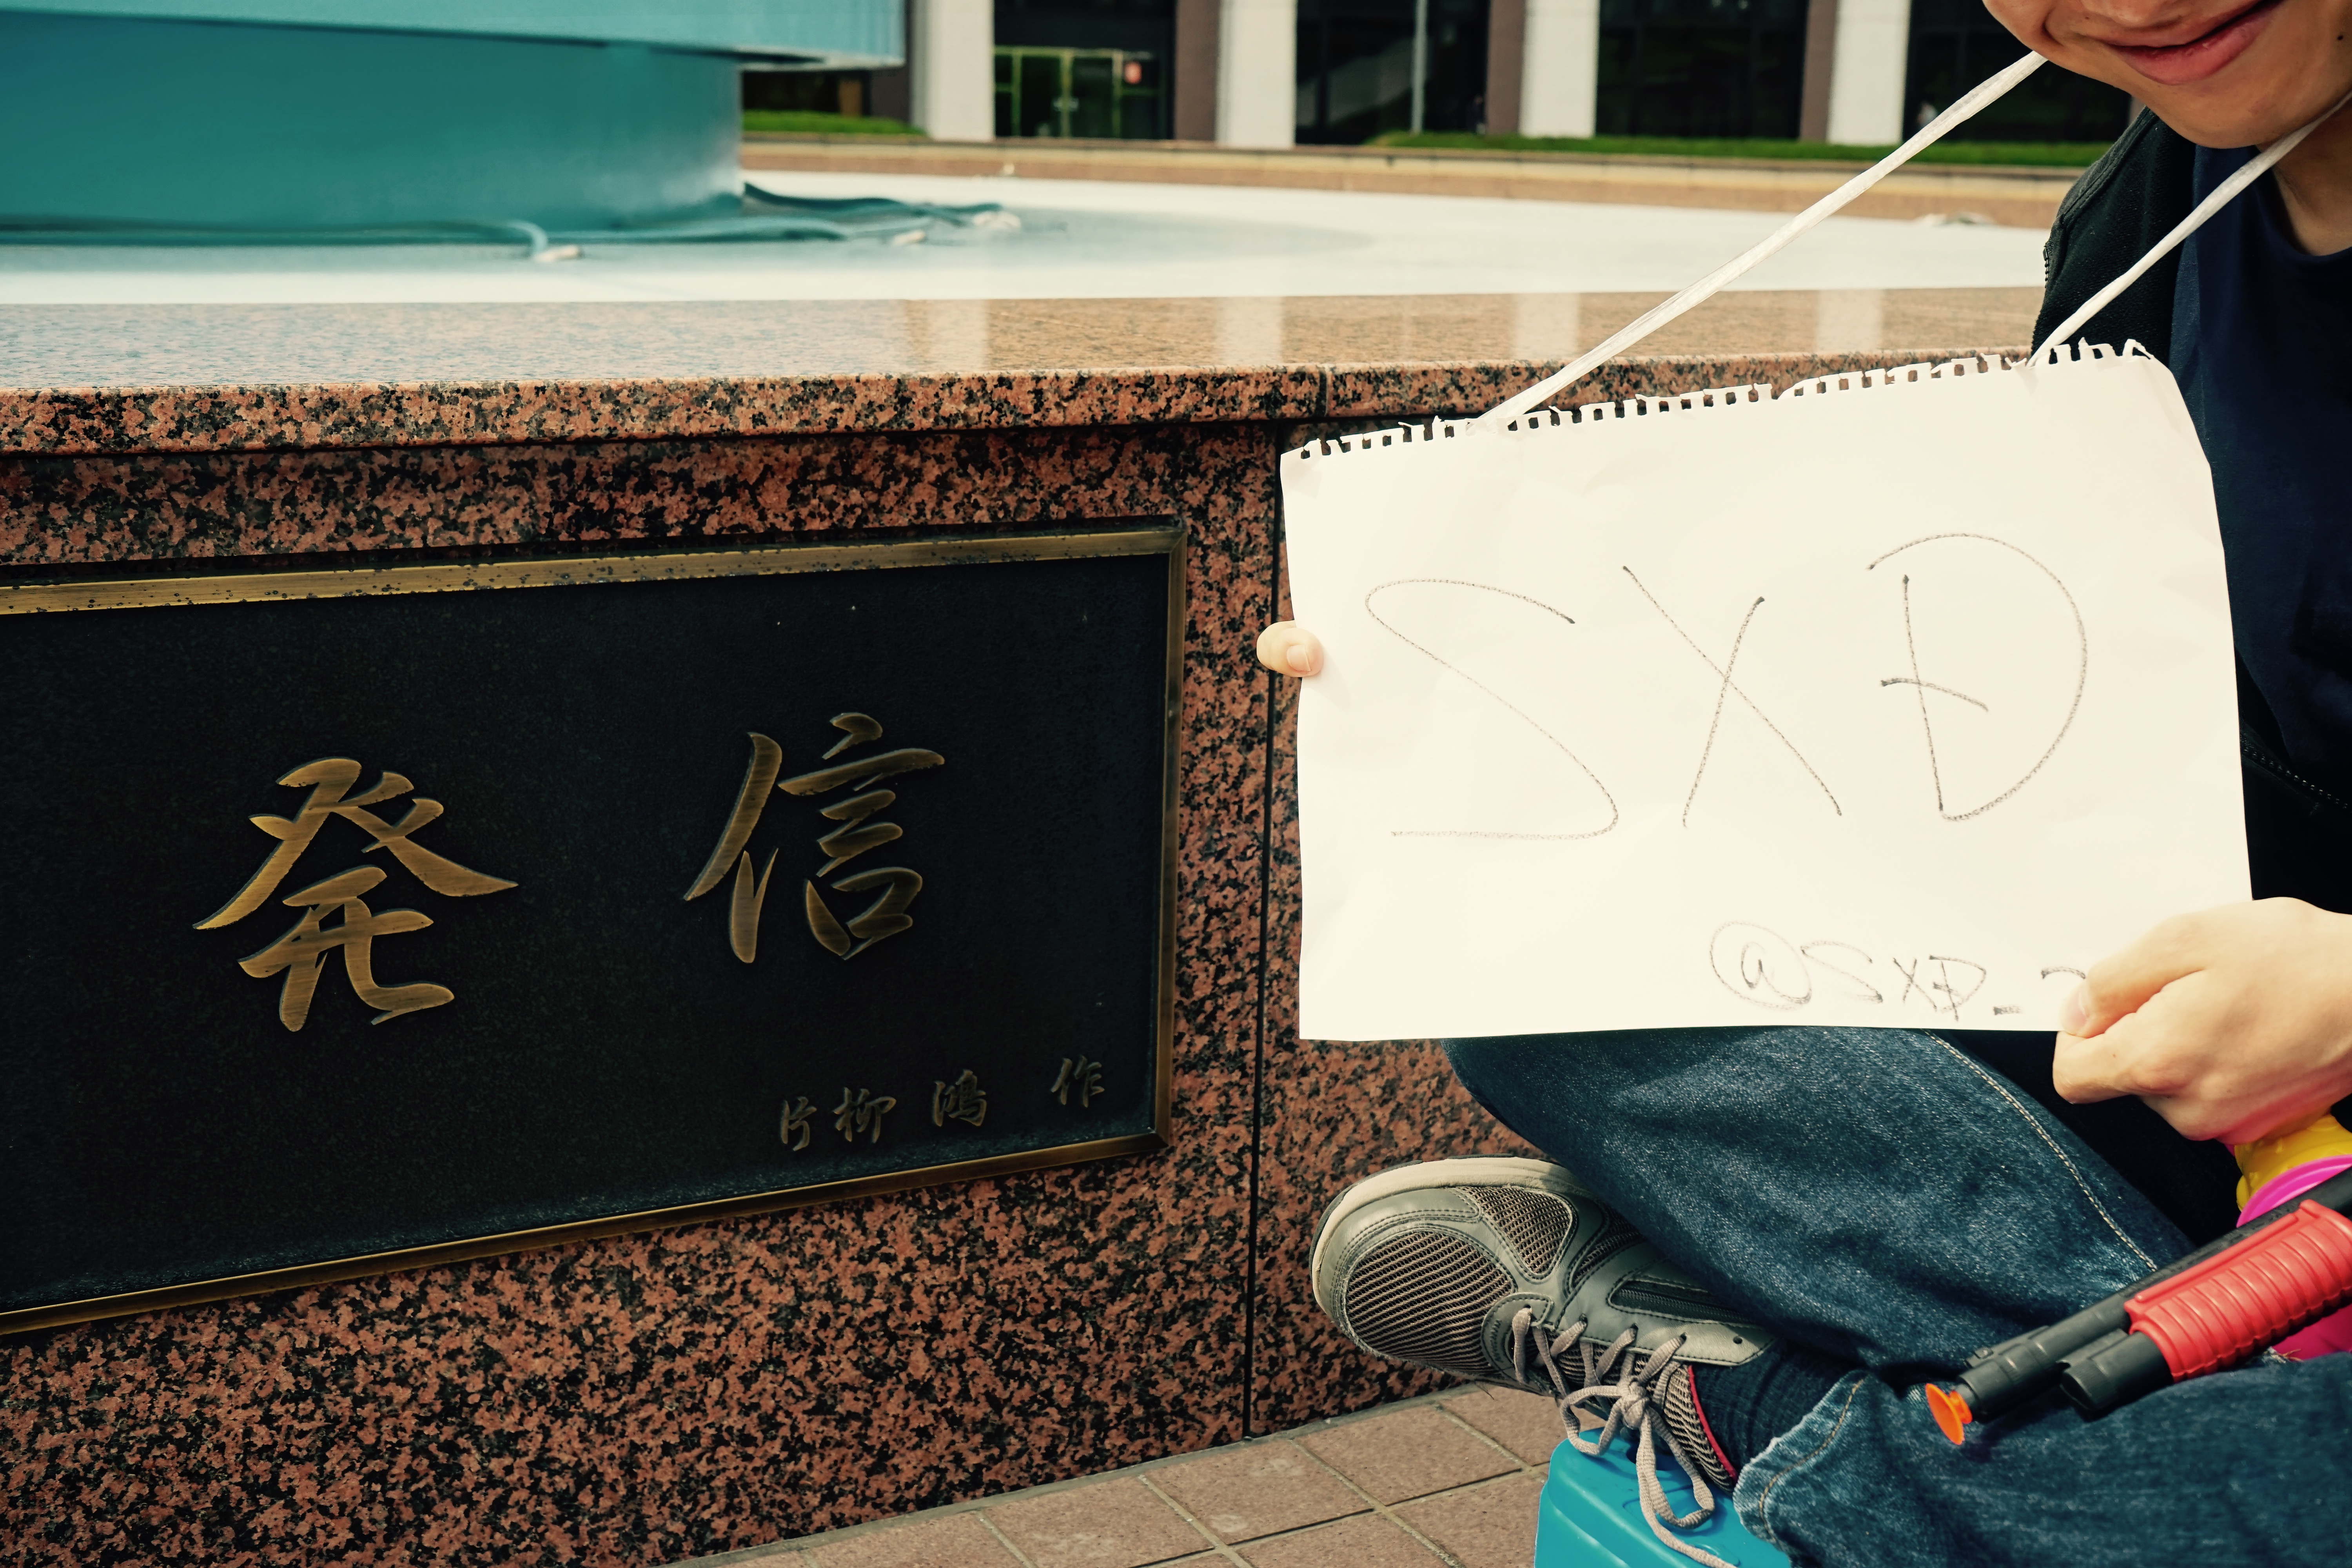 発信
片柳 鴻 作
SXD
@SXD_